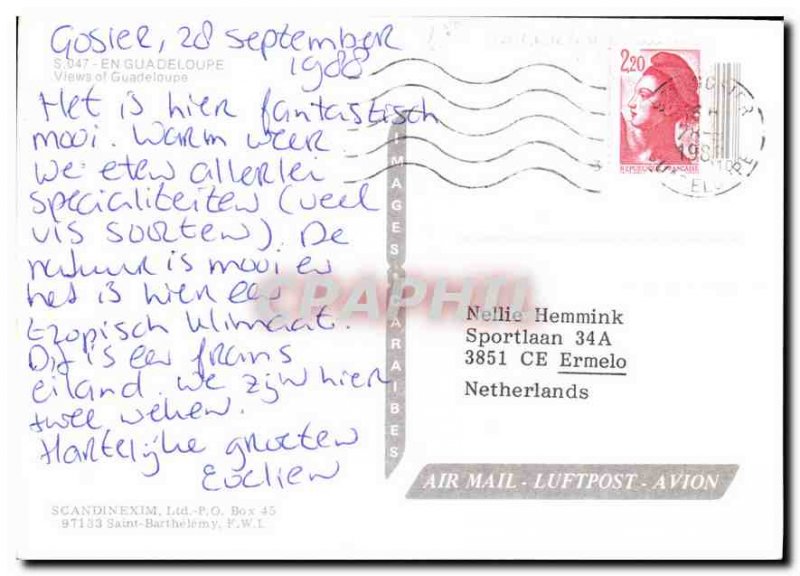 Gosier, 28 september
1988
S.047 - EN GUADELOUPE
Views of Guadeloupe
Het is hier fantastisch
mooi. Warm weer
we eten allerlei
specialiteiten (veel
vis soorten). De
natuur is mooi en
het is hier een
tropisch klimaat.
Dit is een frans
eiland. we zijn hier
twee weken.
Hartelijke groeten
Evelien
SCANDINEXIM, Ltd.-P.O. Box 45
97133 Saint-Barthélemy, F.W.I.
IMAGES CARAIBES
2,20
REPUBLIQUE FRANÇAISE
CPAPHIL
Nellie Hemmink
Sportlaan 34A
3851 CE Ermelo
Netherlands
AIR MAIL - LUFTPOST - AVION